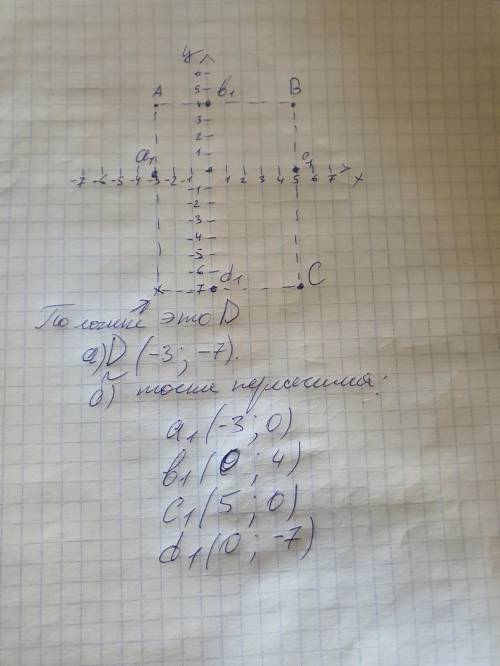 y
6
A 5 b1 B
4
3
2
a1 1 c1
-7 -6 -5 -4 -3 -2 -1 1 2 3 4 5 6 7 x
-1
-2
-3
-4
-5
-6 d1
-7 C
По логике это D
а) D (-3; -7).
б) точки пересечения:
a1 (-3; 0)
b1 (0; 4)
c1 (5; 0)
d1 (0; -7)